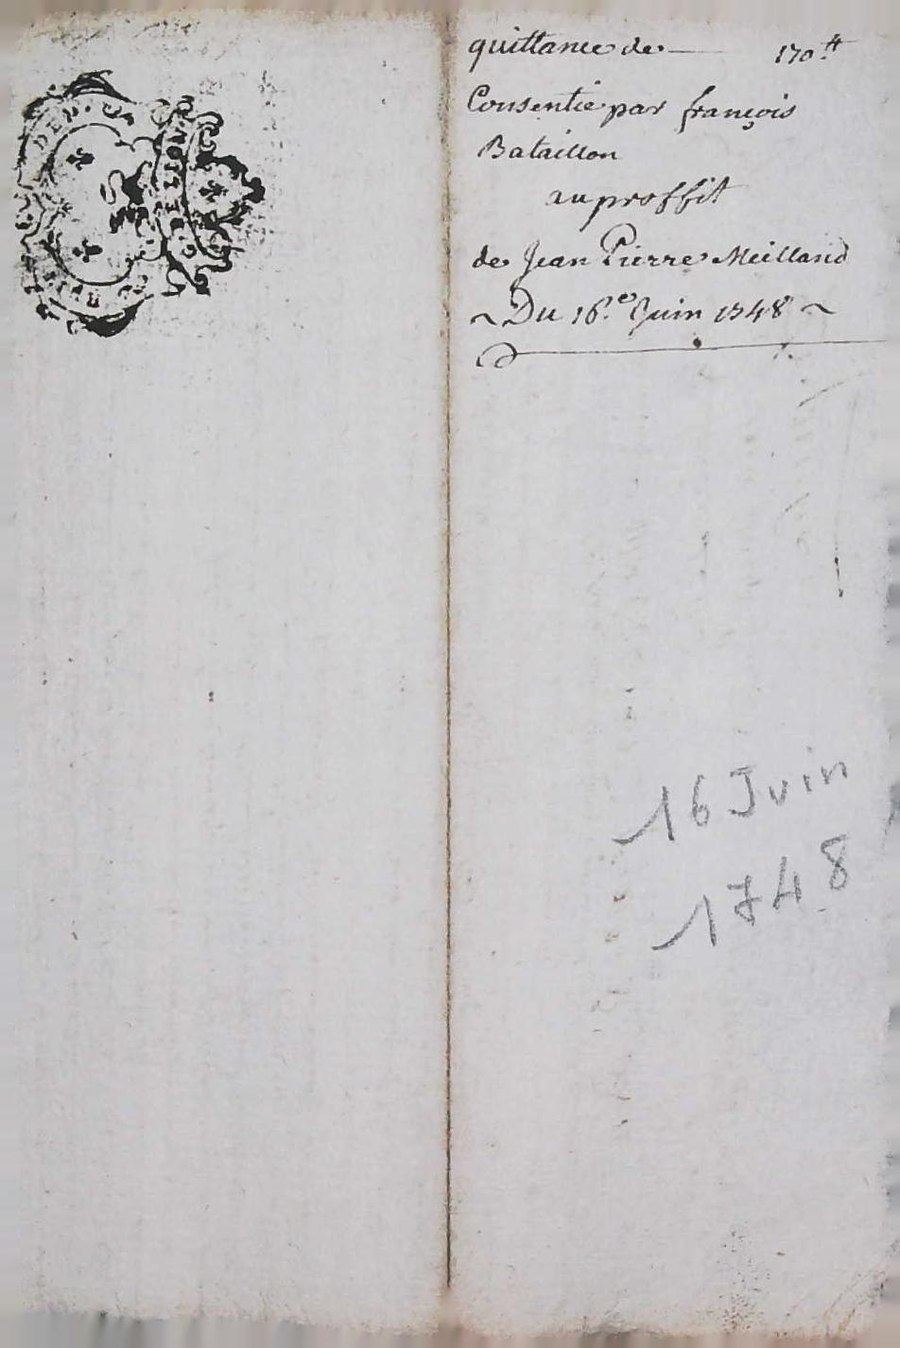 quittance de 170.₶
Consentie par françois
Bataillon
au proffit
de Jean Pierre Meilland
~ Du 16.e Juin 1748 ~
16 Juin
1748